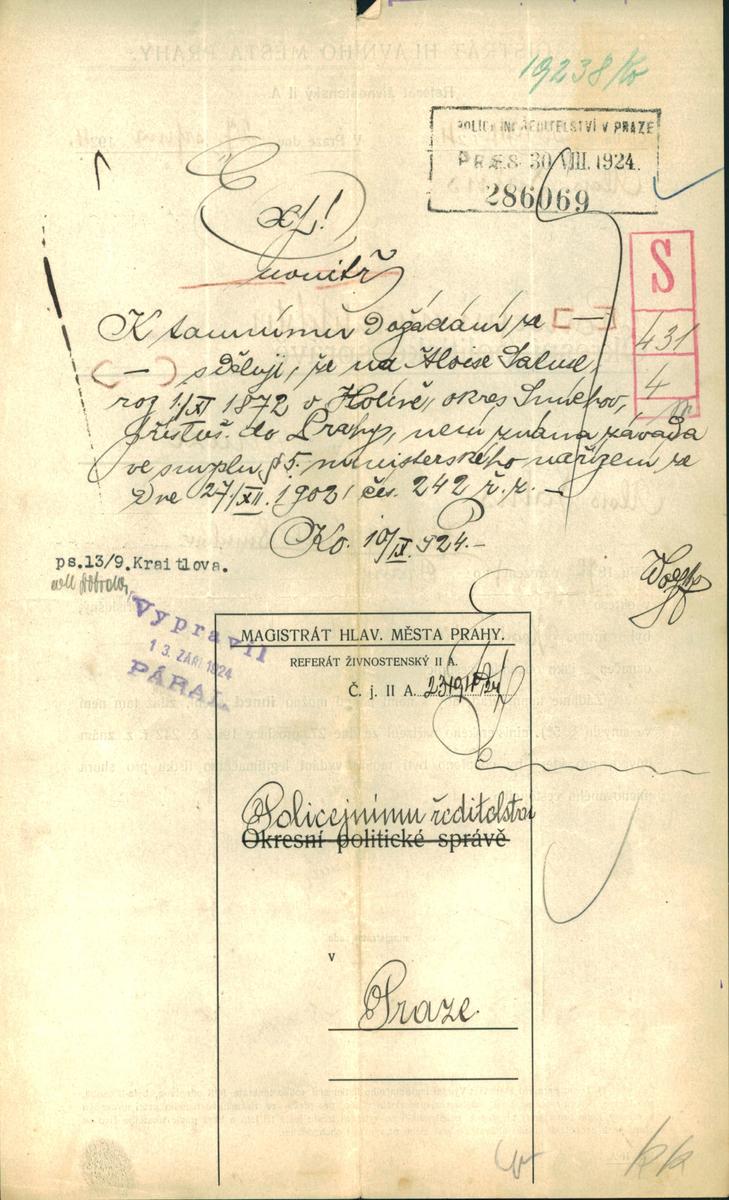 19238/Ko
POLICEJNÍ ŘEDITELSTVÍ V PRAZE
PRÆS 30 VIII. 1924.
286069
S
431
4
Exp!
uvnitř
K tamnímu dožádání ze —
— sděluji, že na Aloise Saluse,
roz. 1./XI 1872 v Holině, okres Smíchov,
přísluš. do Prahy, není známa závada
ve smyslu § 5. ministerského nařízení ze
dne 27./XII. 1902, čís. 242 ř. z. —
Ko. 10/IX 924.—
ps.13/9. Kraitlova.
Vypravil
13. ZÁŘÍ 1924
PÁRAL
MAGISTRÁT HLAV. MĚSTA PRAHY.
REFERÁT ŽIVNOSTENSKÝ II A.
Č. j. II A.
Policejnímu ředitelství
Okresní politické správě
v
Praze.
kk